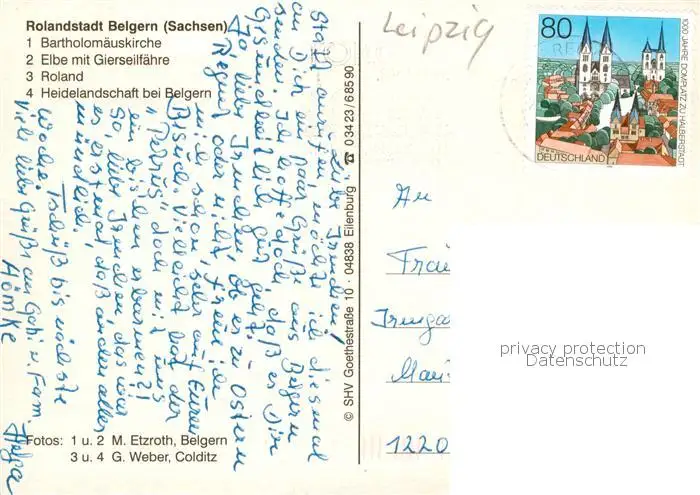 Rolandstadt Belgern (Sachsen)
1 Bartholomäuskirche
2 Elbe mit Gierseilfähre
3 Roland
4 Heidelandschaft bei Belgern
Liebe Irmchen!
Statt anrufen, möchte ich diesmal
an Dich ein paar Grüße aus Belgern
senden. Ich hoffe doch, daß es Dir
Gesundheitlich gut geht.
Ja liebe Irmchen, ob es zu Ostern
Regnet oder nicht, freue ich
mich schon sehr auf Euren
Besuch. Vielleicht hat der
"Petrus" doch mit uns
ein bißchen erbarmen?!
So, liebe Irmchen, das wär
es erstmal, daß andere alles
mündlich.
Tschüß bis nächste
Woche.
Viele liebe Grüße an Gabi u. Fam.
Fotos: 1 u. 2 M. Etzroth, Belgern
3 u. 4 G. Weber, Colditz
© SHV Goethestraße 10 · 04838 Eilenburg ☎ 03423/68590
Leipzig
80
DEUTSCHLAND
1000 JAHRE DOMPLATZ ZU HALBERSTADT
An
Frau
Irmga
1220
privacy protection
Datenschutz